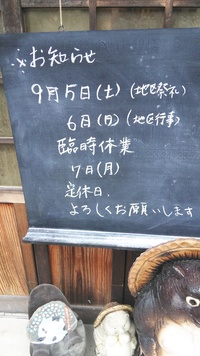 ※お知らせ
9月5日(土)(地区祭礼)
6日(日)(地区行事)
臨時休業
7日(月)
定休日、
よろしくお願いします